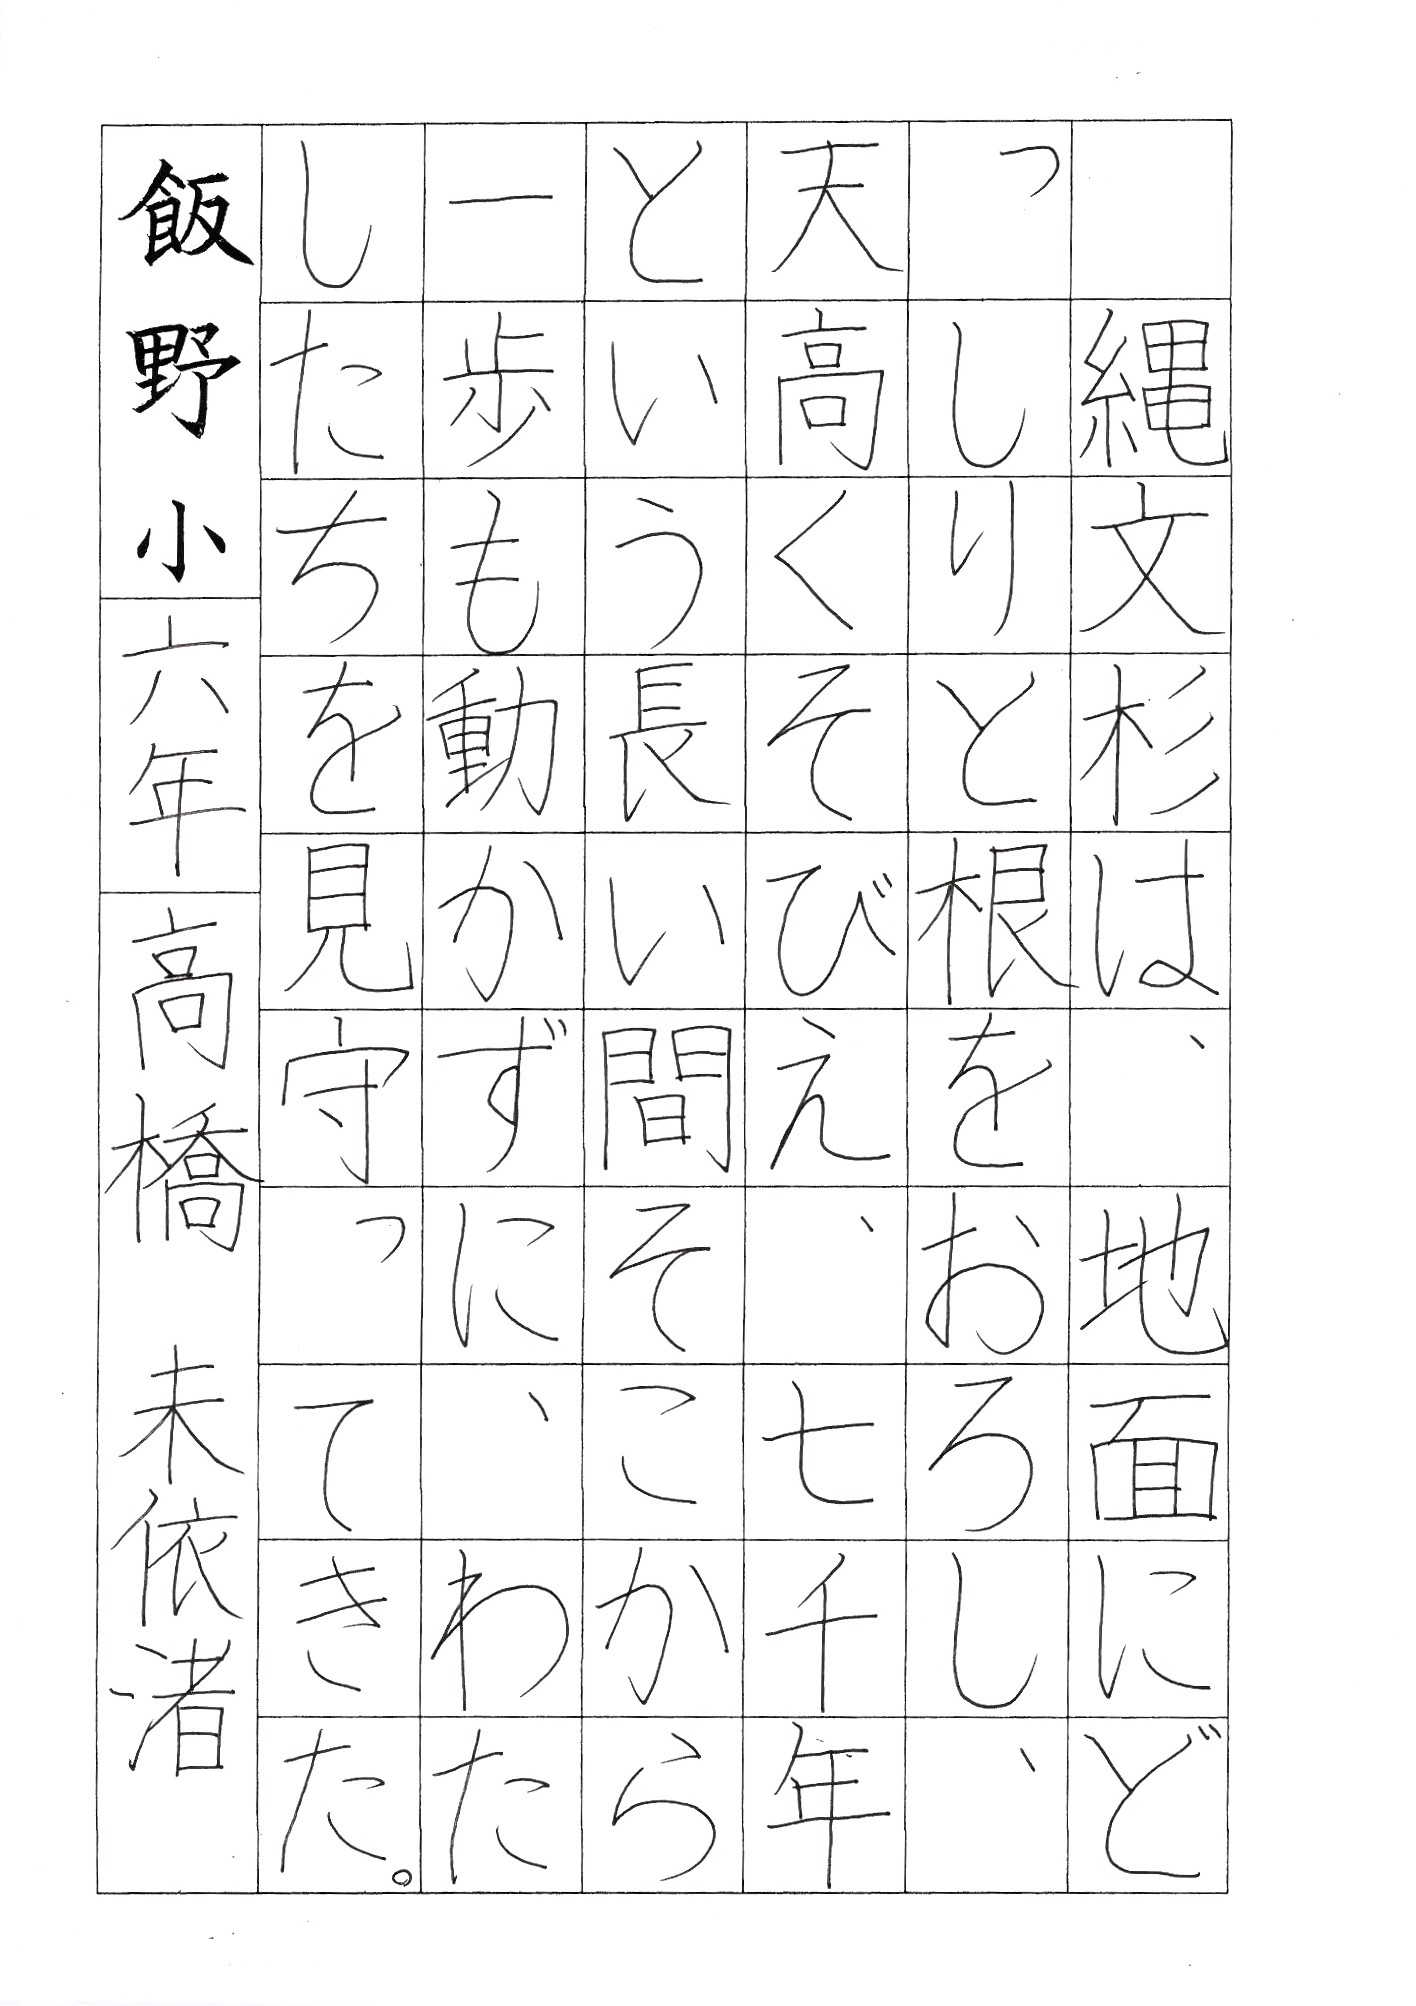 縄文杉は、地面にど
っしりと根をおろし、
天高くそびえ、七千年
という長い間そこから
一歩も動かずに、わた
したちを見守ってきた。
飯野小六年高橋　未依渚